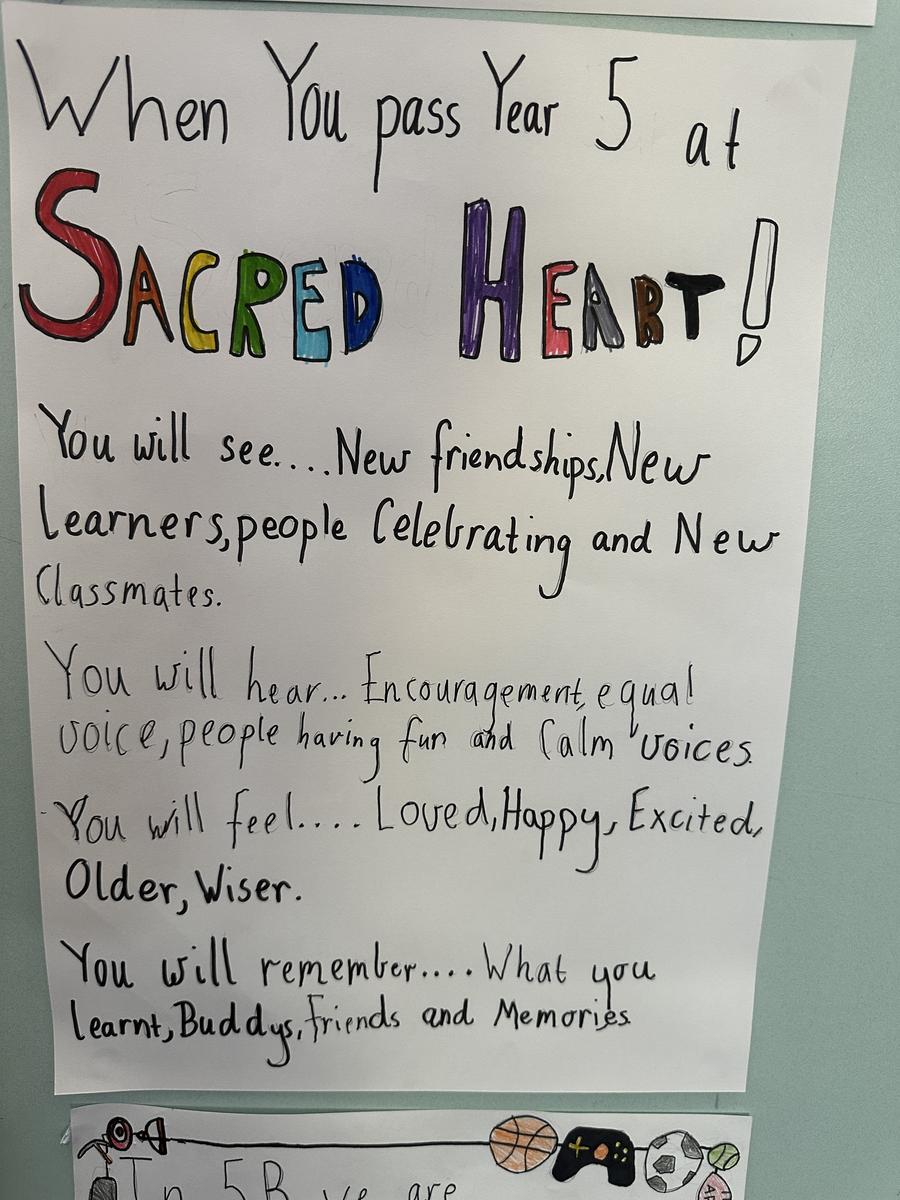 When You pass Year 5 at
SACRED HEART!
You will see....New friendships,New
Learners,people Celebrating and New
Classmates.
You will hear... Encouragement, equal
voice,people having fun and Calm voices.
You will feel.... Loved,Happy, Excited,
Older, Wiser.
You will remember.... What you
learnt,Buddys,friends and Memories.
In 5B we are